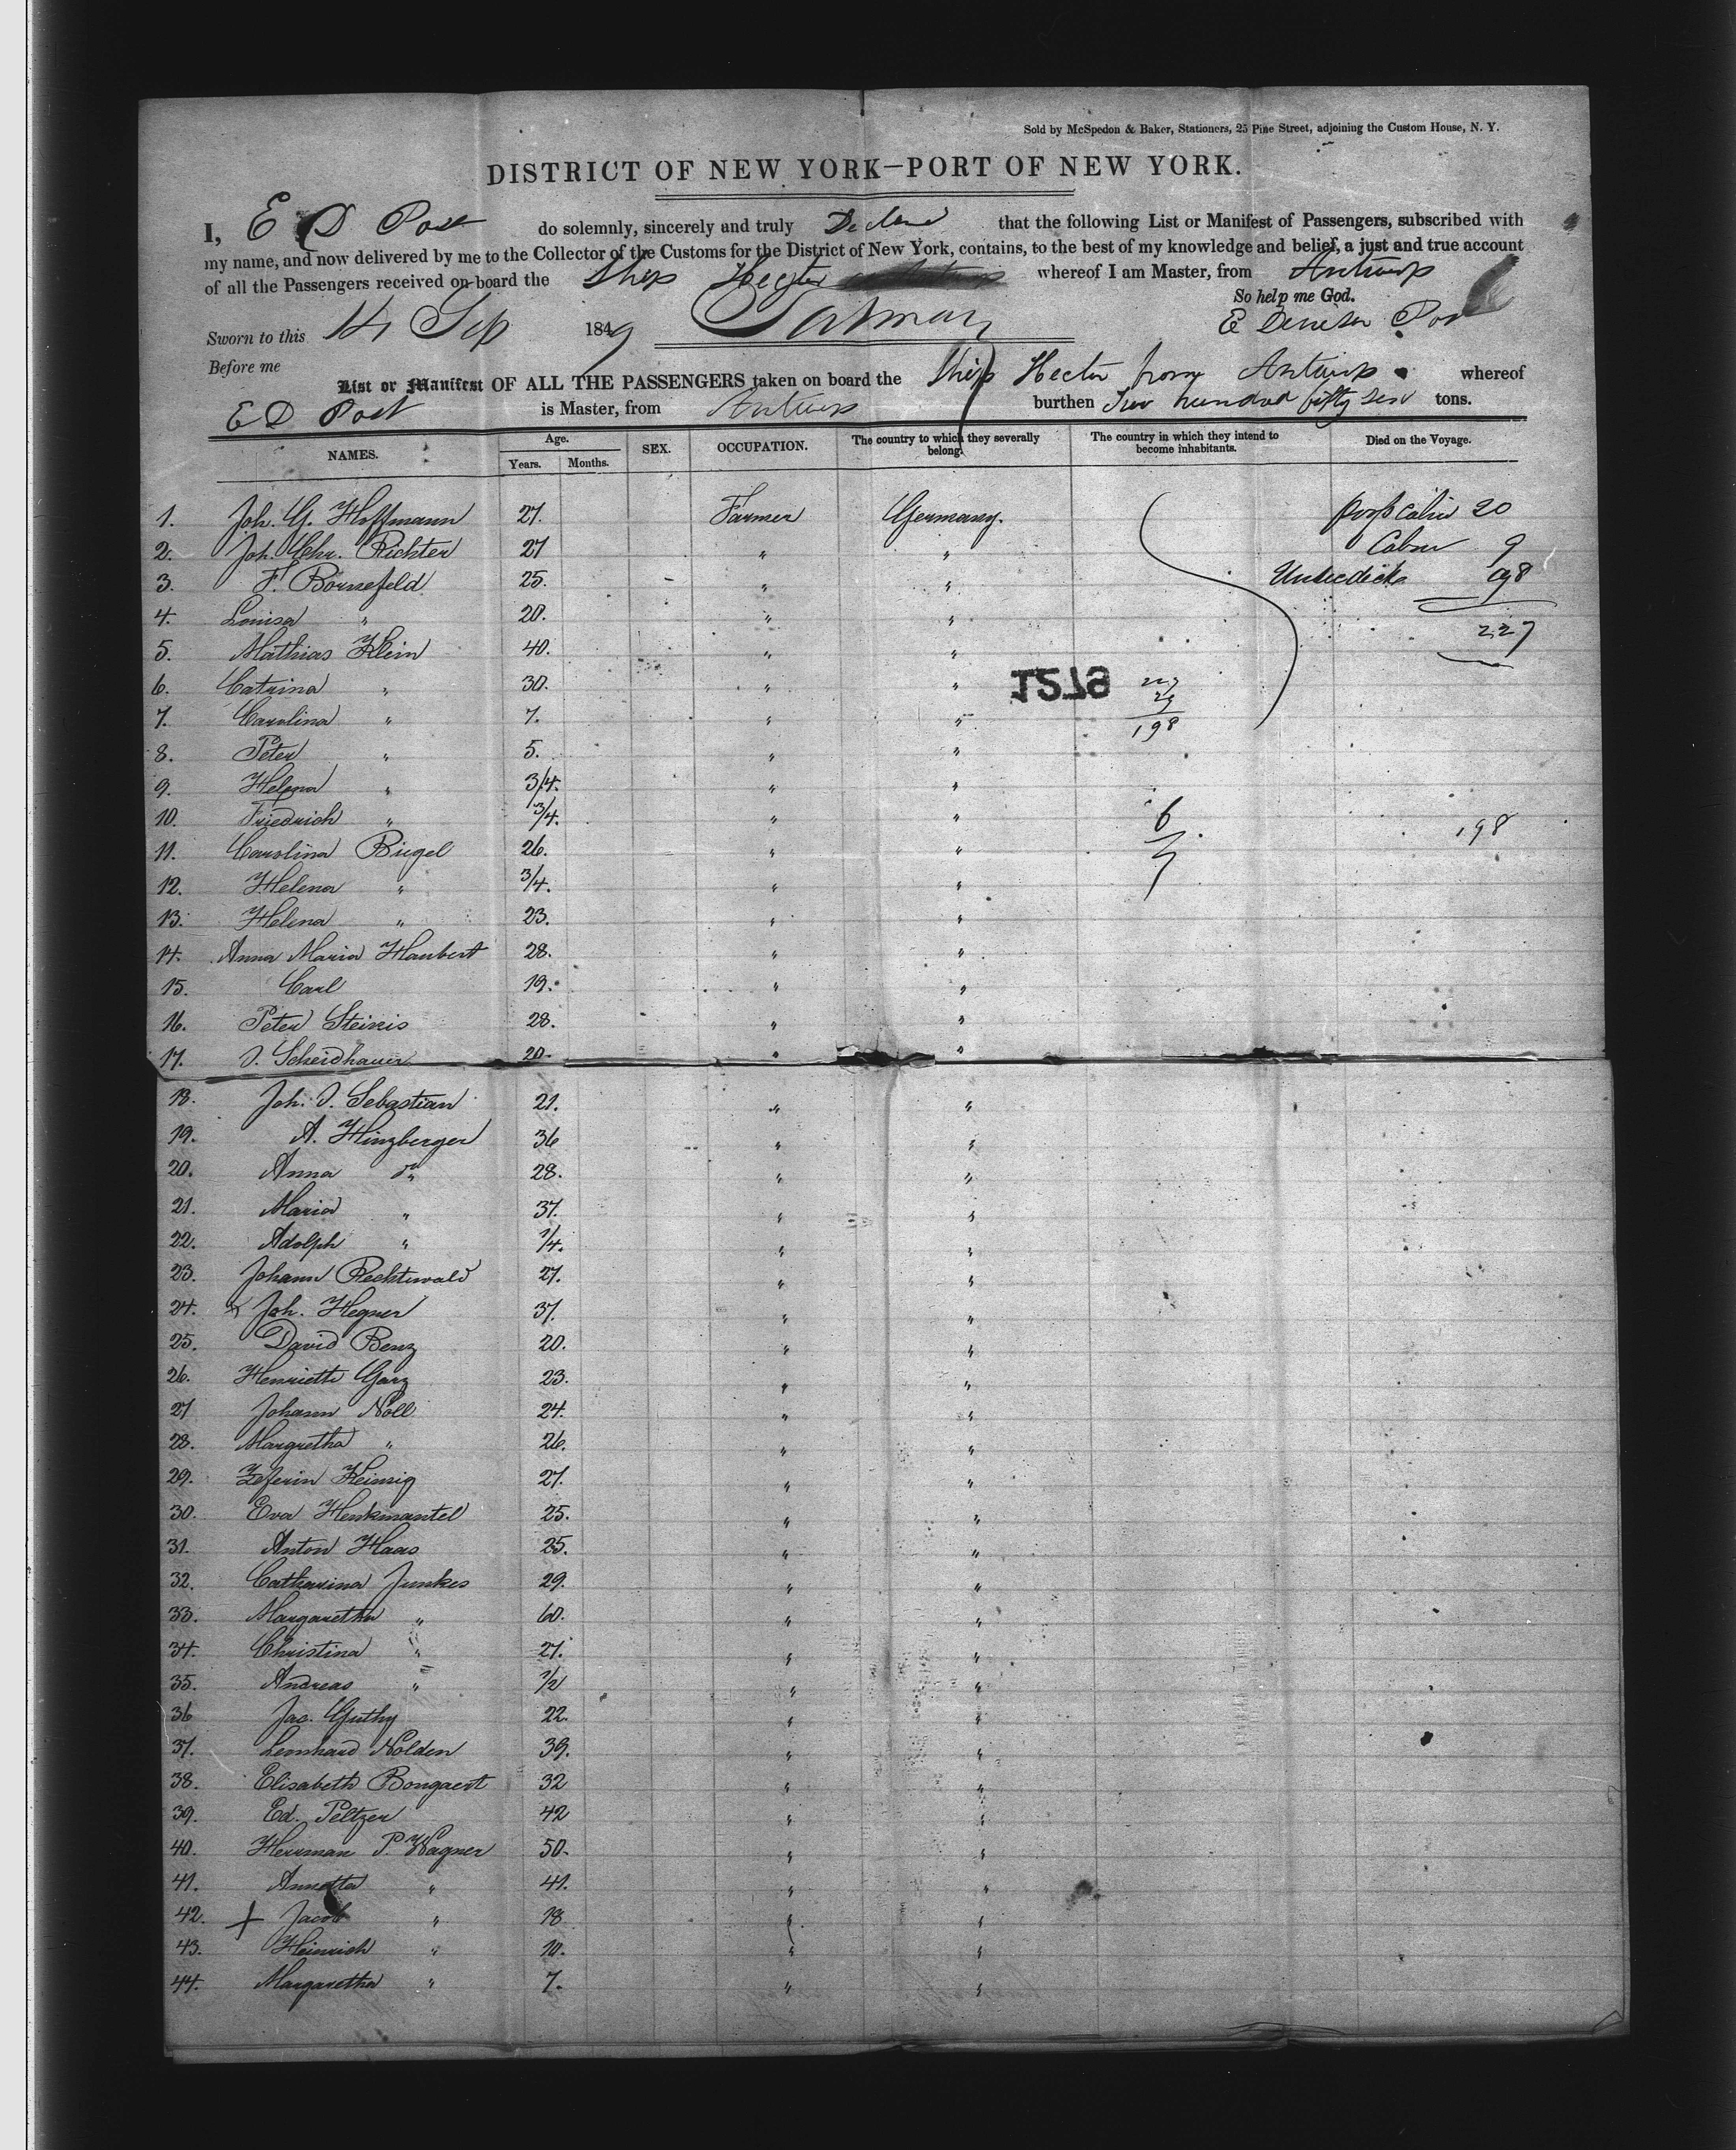 Sold by McSpedon & Baker, Stationers, 25 Pine Street, adjoining the Custom House, N. Y.
DISTRICT OF NEW YORK—PORT OF NEW YORK.
I, E D Post do solemnly, sincerely and truly Declare that the following List or Manifest of Passengers, subscribed with
my name, and now delivered by me to the Collector of the Customs for the District of New York, contains, to the best of my knowledge and belief, a just and true account
of all the Passengers received on board the Ship Hector whereof I am Master, from Antwerp
So help me God.
Sworn to this 14 Sep 1849 E Denison Post
Before me
List or Manifest OF ALL THE PASSENGERS taken on board the Ship Hector from Antwerp whereof
E D Post is Master, from Antwerp burthen hundred fifty tons.
NAMES. Age. Years. Months. SEX. OCCUPATION. The country to which they severally belong. The country in which they intend to become inhabitants. Died on the Voyage.
1. Joh. G. Hoffmann 27. Farmer Germany. 20
2. Joh. Chr. Richter 27 " " 9
3. F. Bornefeld 25. " " 198
4. Louisa " 20. " " 227
5. Mathias Klein 40. " "
6. Catrina " 30. " " 1279 227
7. Carolina " 7. " " 29
198
8. Peter " 5. " "
9. Helena " 3/4. " "
10. Friedrich " 3/4. " " 6 198
11. Carolina Biegel 26. " " 7
12. Helena " 3/4. " "
13. Helena " 23. " "
14. Anna Maria Haubert 28. " "
15. Carl 19. " "
16. Peter Steinis 28. " "
17. J. Scheidhauer 20. " "
18. Joh. J. Sebastian 21. " "
19. A. Hinzberger 36 " "
20. Anna do 28. " "
21. Maria " 37. " "
22. Adolph " 1/4. " "
23. Johann Rechtwald 27. " "
24. x Joh. Hegner 37. " "
25. David Benz 20. " "
26. Henriette Garz 23. " "
27 Johann Noll 24. " "
28. Margretha " 26. " "
29. Zeferin Heinzig 27. " "
30. Eva Henkmantel 25. " "
31. Anton Haas 25. " "
32. Catharina Junkes 29. " "
33. Margaretha " 60. " "
34. Christina " 27. " "
35. Andreas " 1/2 " "
36 Jac. Guthy 22. " "
37. Leonhard Nolden 39. " "
38. Elisabeth Bongaert 32 " "
39. Ed. Peltzer 42 " "
40. Herrman P. Wagner 50. " "
41. Annetta " 41. " "
42. + Jacob " 18 " "
43. Heinrich " 10. " "
44. Margaretha " 7. " "